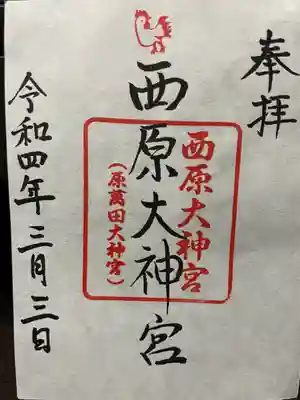 奉拝
西原大神宮
西原大神宮
(原萬田大神宮)
令和四年三月三日